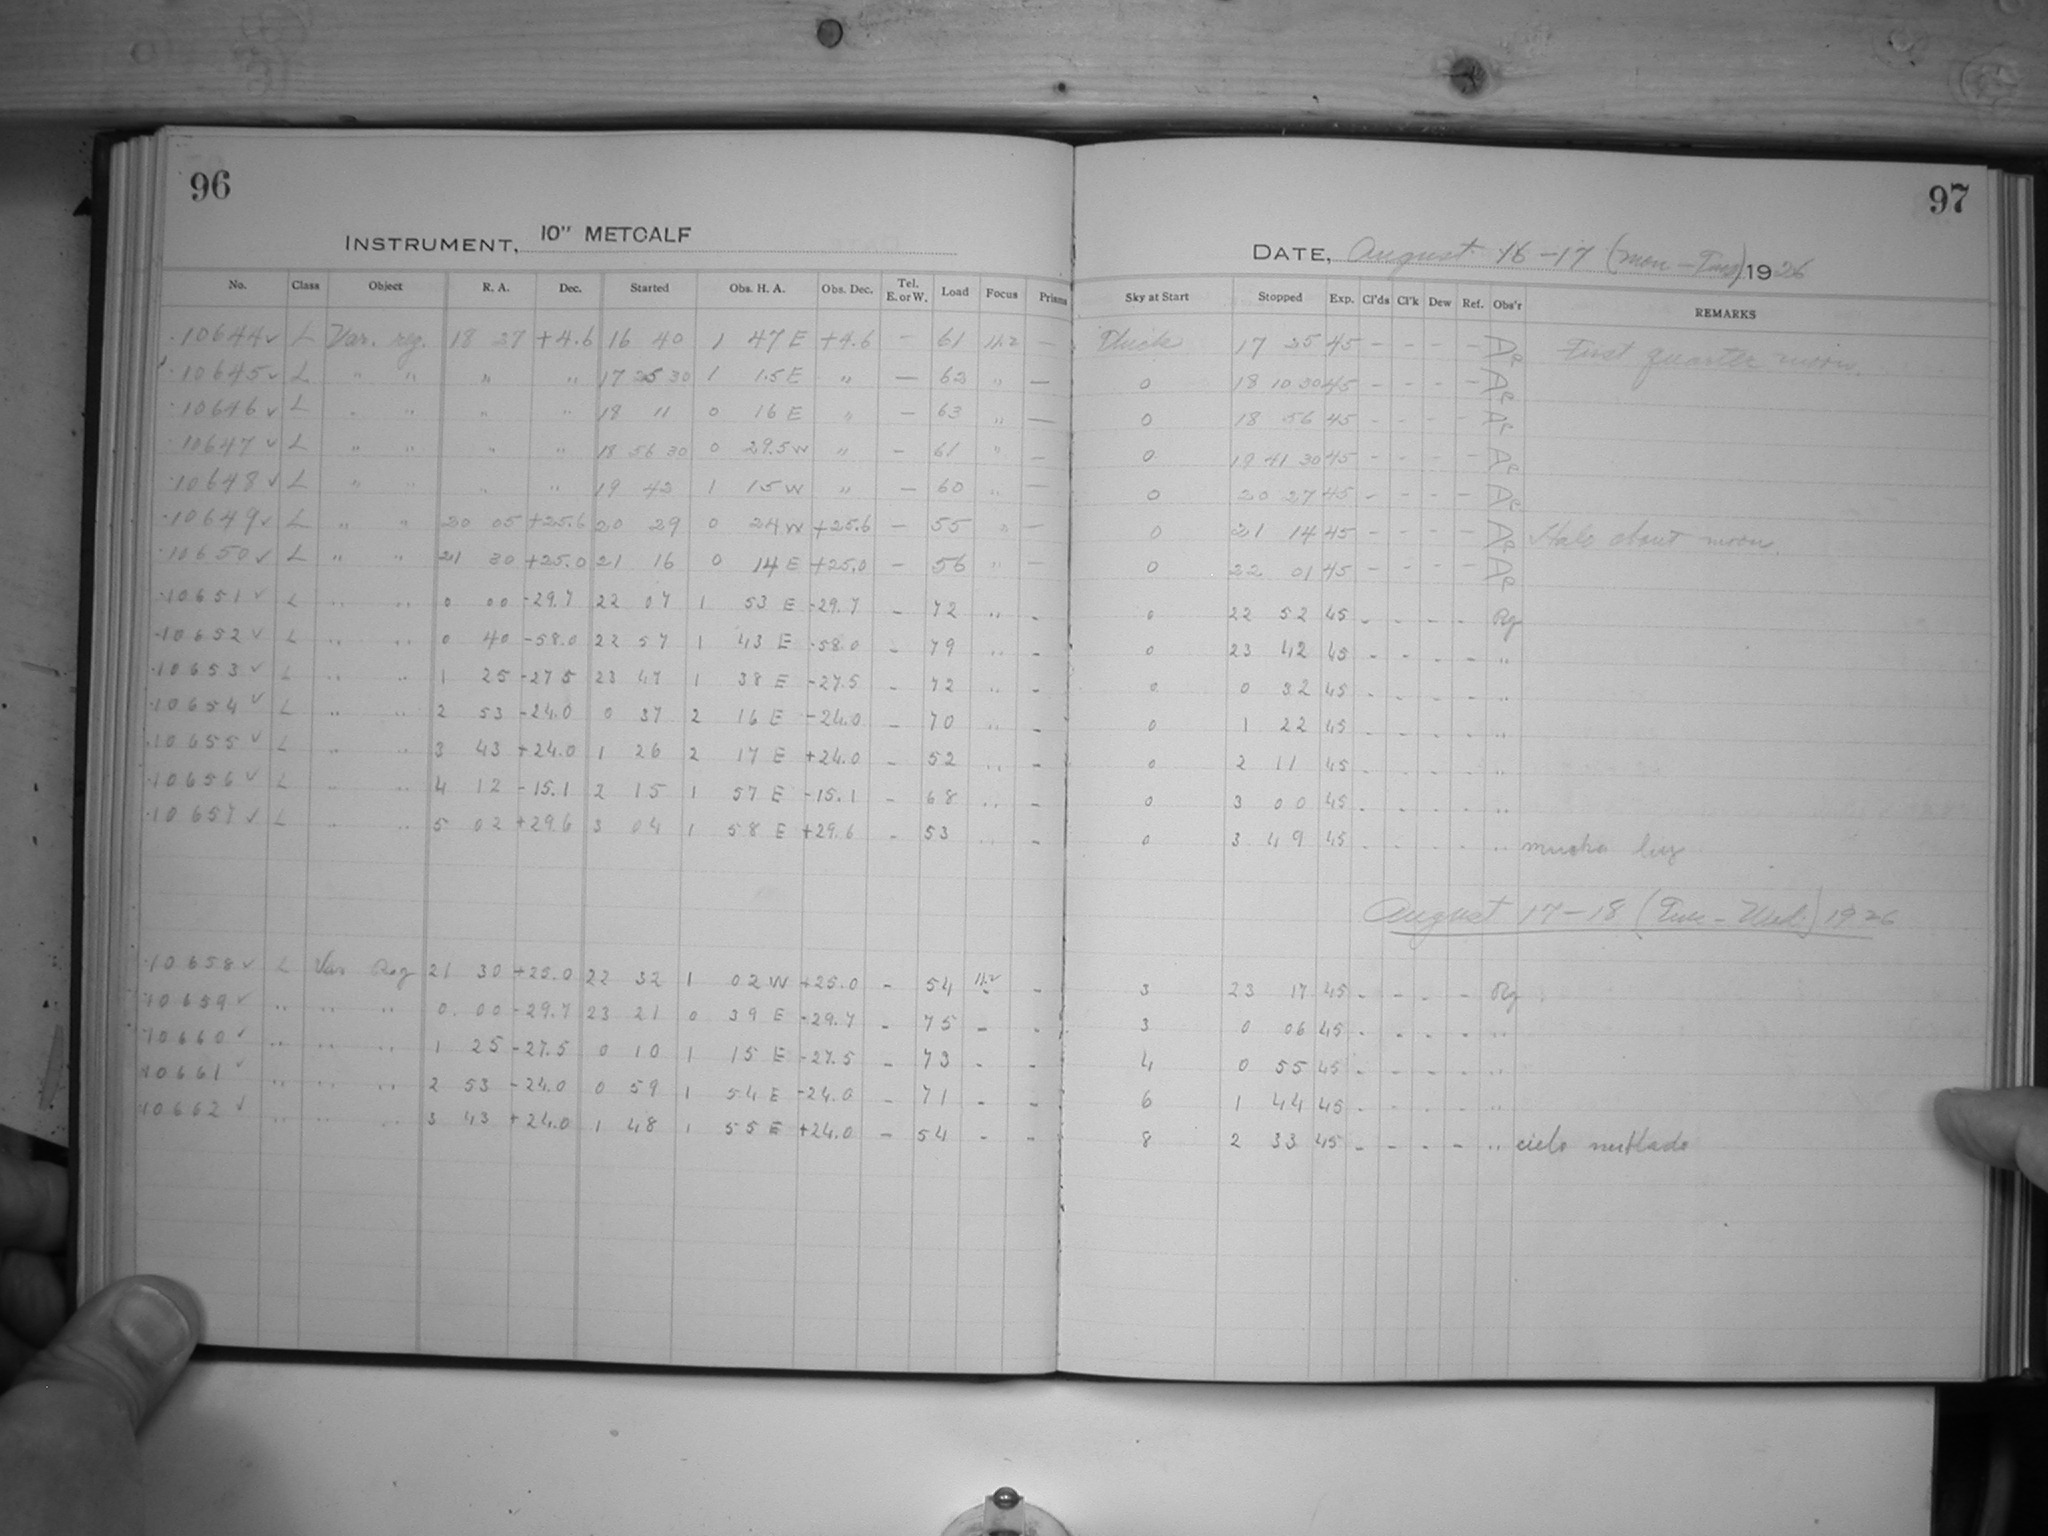 96
INSTRUMENT, 10" METCALF
No. Class Object R. A. Dec. Started Obs. H. A. Obs. Dec. Tel. E. or W. Load Focus Prisms
10644 ✓ L Var. reg. 18 27 +4.6 16 40 1 47 E +4.6 - 61 11.2 -
10645 ✓ L " " " " 17 25 30 1 1.5 E " - 62 " -
10646 ✓ L " " " " 18 11 0 16 E " - 63 " -
10647 ✓ L " " " " 18 56 30 0 29.5 W " - 61 " -
10648 ✓ L " " " " 19 42 1 15 W " - 60 " -
10649 ✓ L " " 20 05 +25.6 20 29 0 24 W +25.6 - 55 " -
10650 ✓ L " " 21 30 +25.0 21 16 0 14 E +25.0 - 56 " -
10651 ✓ L " " 0 00 -29.7 22 07 1 53 E -29.7 - 72 " -
10652 ✓ L " " 0 40 -58.0 22 57 1 43 E -58.0 - 79 " -
10653 ✓ L " " 1 25 -27.5 23 47 1 38 E -27.5 - 72 " -
10654 ✓ L " " 2 53 -24.0 0 37 2 16 E -24.0 - 70 " -
10655 ✓ L " " 3 43 +24.0 1 26 2 17 E +24.0 - 52 " -
10656 ✓ L " " 4 12 -15.1 2 15 1 57 E -15.1 - 68 " -
10657 ✓ L " " 5 02 +29.6 3 04 1 58 E +29.6 - 53 " -
10658 ✓ L Var Reg 21 30 +25.0 22 32 1 02 W +25.0 - 54 11.2 -
10659 ✓ " " " 0 00 -29.7 23 21 0 39 E -29.7 - 75 - -
10660 ✓ " " " 1 25 -27.5 0 10 1 15 E -27.5 - 73 - -
10661 ✓ " " " 2 53 -24.0 0 59 1 54 E -24.0 - 71 - -
10662 ✓ " " " 3 43 +24.0 1 48 1 55 E +24.0 - 54 - -
97
DATE, August 16-17 (Mon-Tues) 1926
Sky at Start Stopped Exp. Cl'ds Cl'k Dew Ref. Obs'r REMARKS
Thick 17 25 45 - - - - De First quarter moon.
0 18 10 30 45 - - - - De
0 18 56 45 - - - - De
0 19 41 30 45 - - - - De
0 20 27 45 - - - - De
0 21 14 45 - - - - De Halo about moon.
0 22 01 45 - - - - De
0 22 52 45 - - - - Rg
0 23 42 45 - - - - "
0 0 32 45 - - - - "
0 1 22 45 - - - - "
0 2 11 45 - - - - "
0 3 00 45 - - - - "
0 3 49 45 - - - - " mucha luz
August 17-18 (Tues-Wed.) 1926
3 23 17 45 - - - - Rg
3 0 06 45 - - - - "
4 0 55 45 - - - - "
6 1 44 45 - - - - "
8 2 33 45 - - - - " cielo nublado